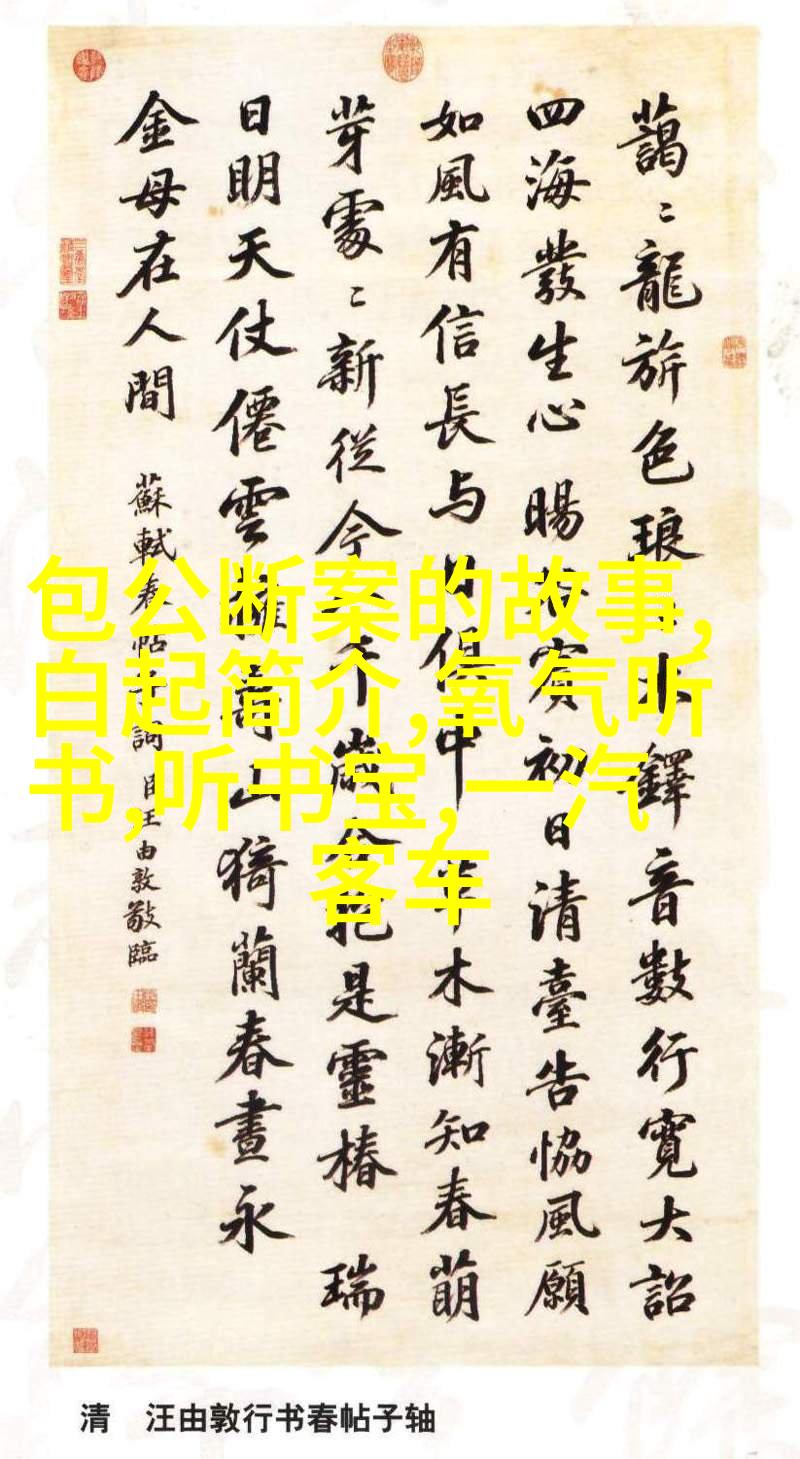 藹〻龍旂色琅 鐸音數行寬大詔
四海發生心 暘 賓初日清臺告協風願
如風有信長与 中 木漸知春萌
芽處〻新從今 千歲 是靈椿 瑞
日明天仗僊雲 山猗蘭春晝永
金母在人間 蘇軾春帖子詞 臣汪由敦敬臨
包公断案的故事,
白起简介,氧气听
书,听书宝,一汽
客车
清 汪由敦行书春帖子轴